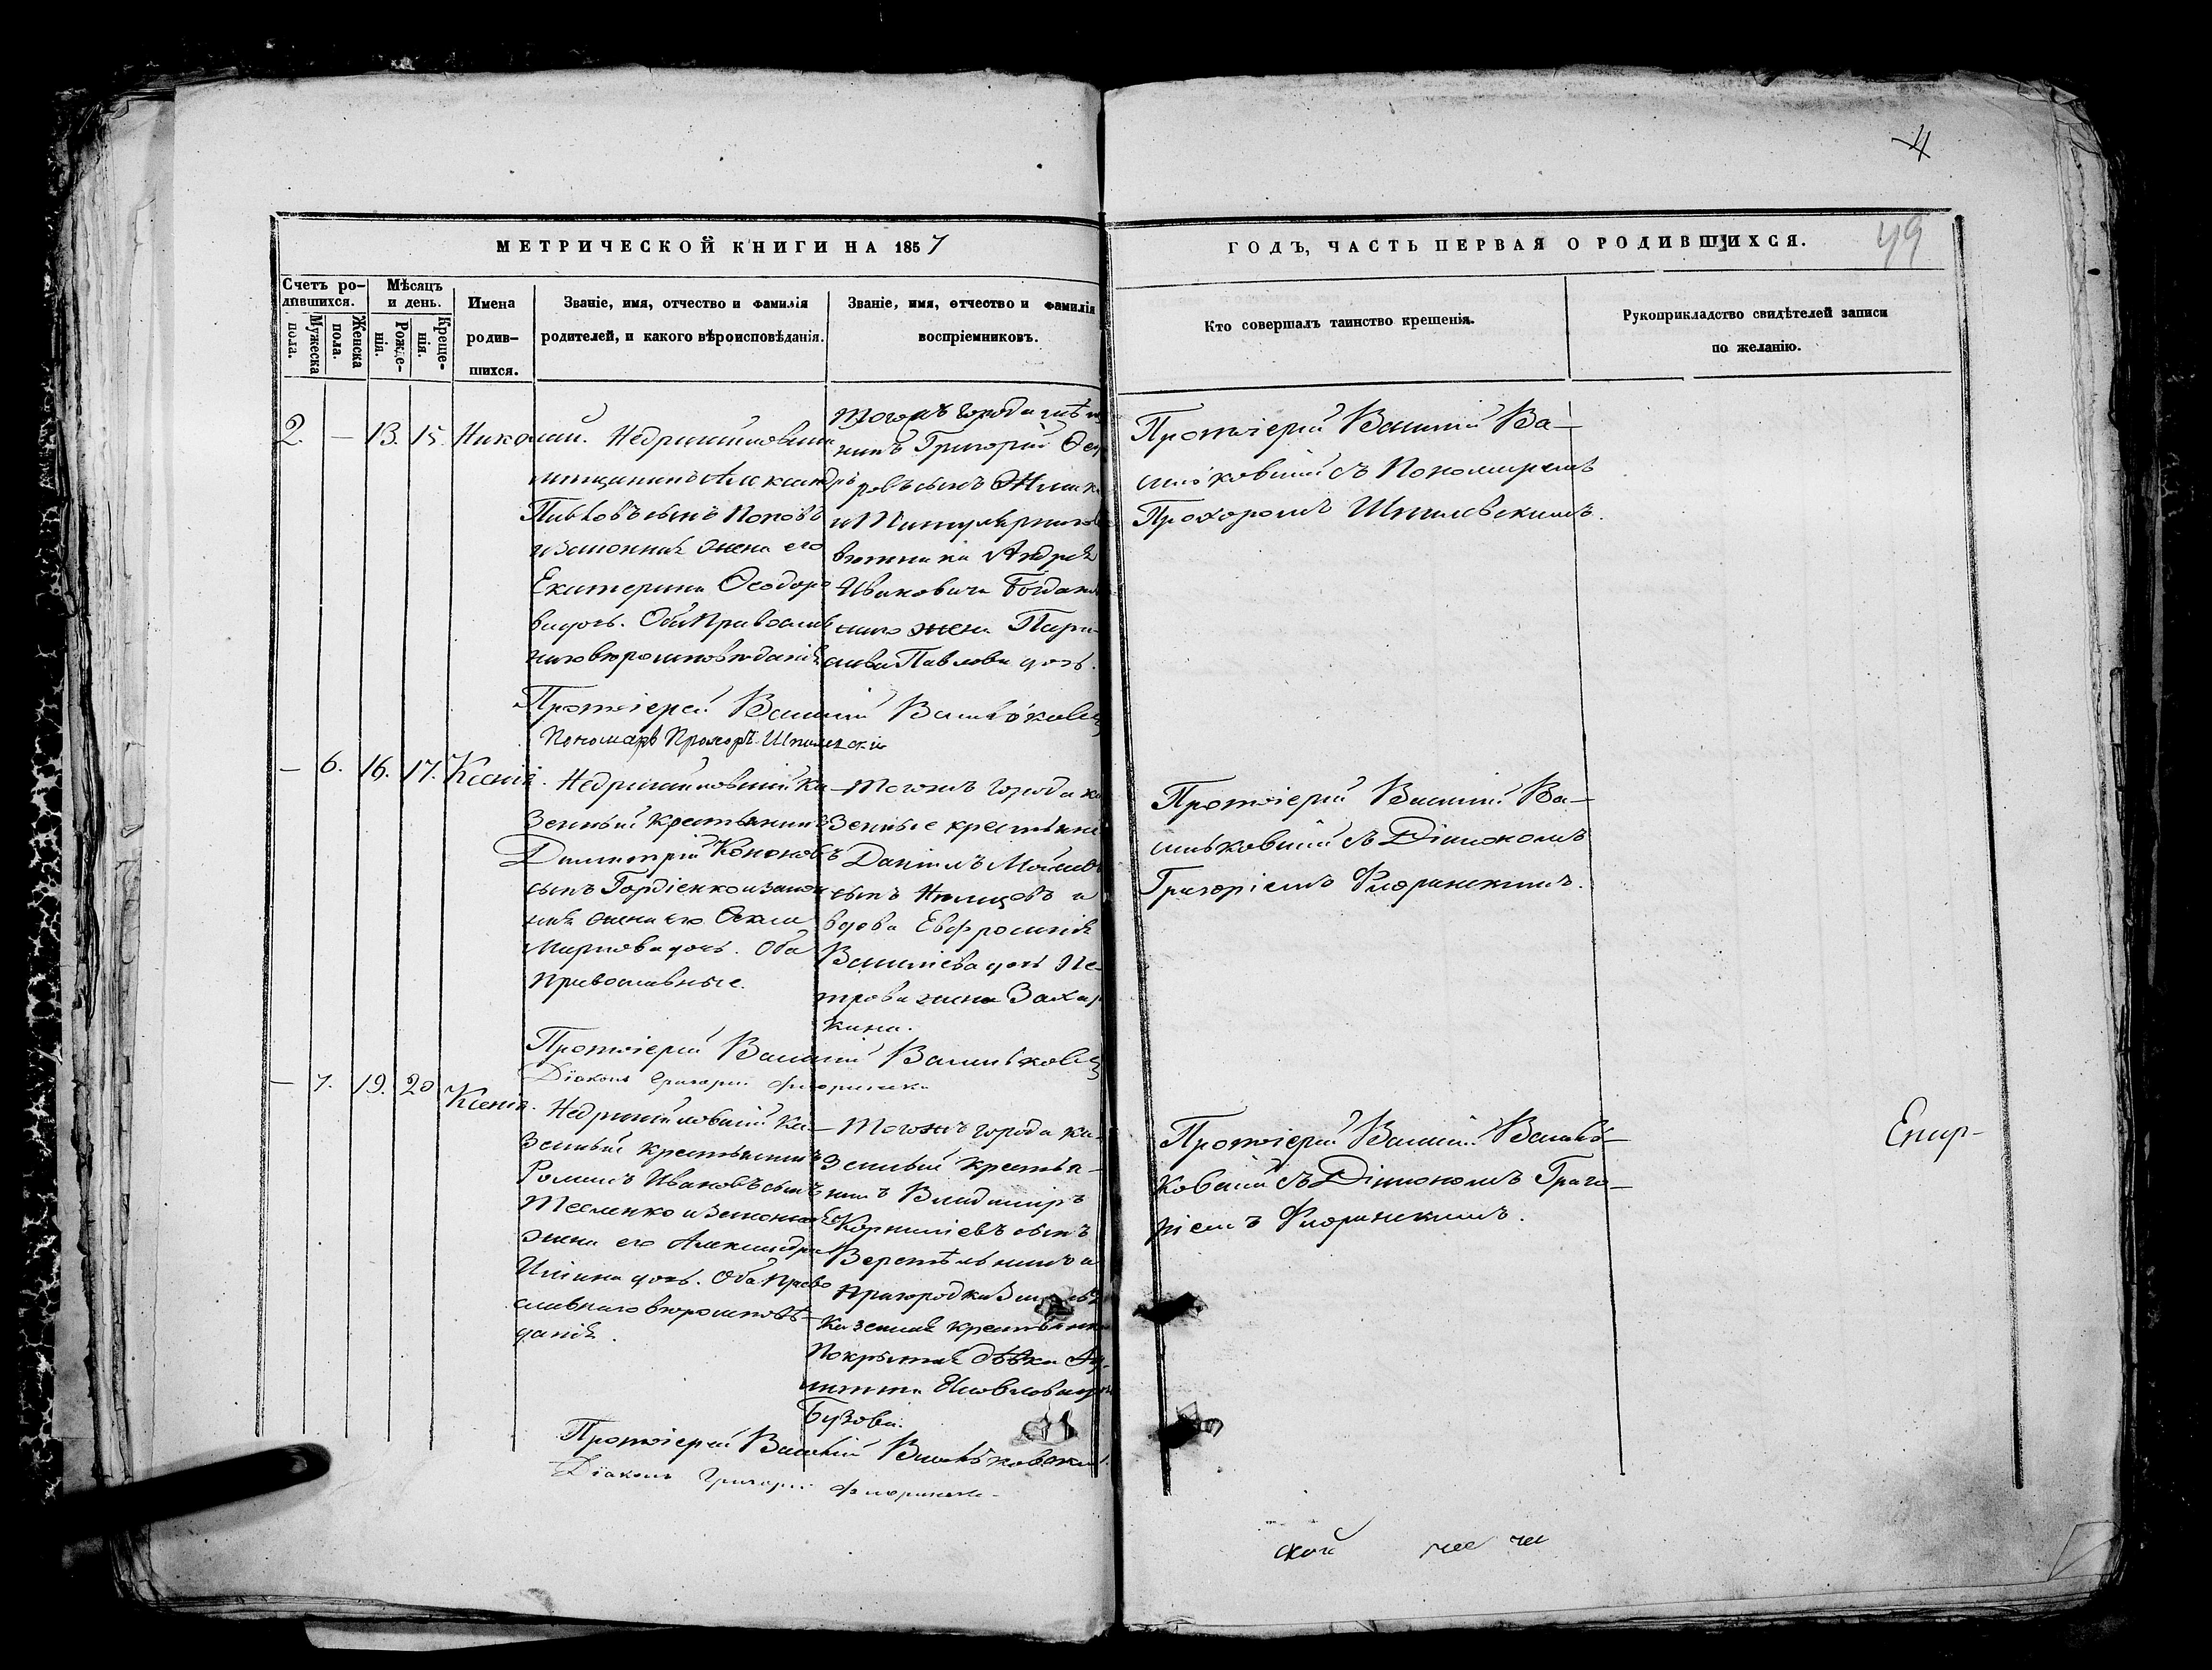 4
МЕТРИЧЕСКОЙ КНИГИ НА 1857
ГОДЪ, ЧАСТЬ ПЕРВАЯ О РОДИВШИХСЯ.
49
Счетъ ро-
дившихся.
Мужеска пола.
Женска пола.
Мѣсяцъ
и день.
Рожде-
нія.
Креще-
нія.
Имена
родив-
шихся.
Званіе, имя, отчество и фамилія
родителей, и какого вѣроисповѣданія.
Званіе, имя, отчество и фамилія
воспріемниковъ.
Кто совершалъ таинство крещенія.
Рукоприкладство свидѣтелей записи
по желанію.
2. — 13. 15. Николай.
мѣщанинъ Александръ
Павловъ сынъ Поповъ
и законная жена его
Екатерина Ѳеодоро
ва дочь. Оба Православ
наго вѣроисповѣданія
Тогожъ города
нинъ Григорій
ровъ сынъ
и Титулярнаго
вѣтника Андрея
Ивановича
жена Пара-
скева Павлова дочь.
Протоіерей Василій Ва-
сильковскій съ Пономаремъ
Прохоромъ Шпилевскимъ.
Протоіерей Василій Васильковскій
Пономарь Прохоръ Шпилевскій
— 6. 16. 17. Ксенія.
зенный крестьянинъ
Димитрій Кононовъ
сынъ Гордіенко и закон
ная жена его
Маркова дочь. Оба
православные.
— Тогожъ города ка
зенные крестьяне
Даніилъ Моисеевъ
сынъ и
вдова Евфросинія
Василіева дочь Пе-
трова жена Захар
кина.
Протоіерей Василій Ва-
сильковскій съ Діакономъ
Григоріемъ Флоринскимъ.
Протоіерей Василій Васильковскій
Діаконъ Григорій Флоринскій
— 7. 19. 20 Ксенія.
зенный крестьянинъ
Романъ Ивановъ сынъ
Тесленко и законная
жена его Александра
Ильина дочь. Оба право
славнаго вѣроисповѣ-
данія.
— Тогожъ города ка-
зенный крестья-
нинъ Владиміръ
Корниліевъ сынъ
и
пригородка
казенная крестьянка
покрытая дѣвка
Яковлева дочь
Бузова.
Протоіерей Василій Василь-
ковскій съ Діакономъ Григо-
ріемъ Флоринскимъ.
Епар-
Протоіерей Василій Васильковскій.
Діаконъ Григорій Флоринскій
ской